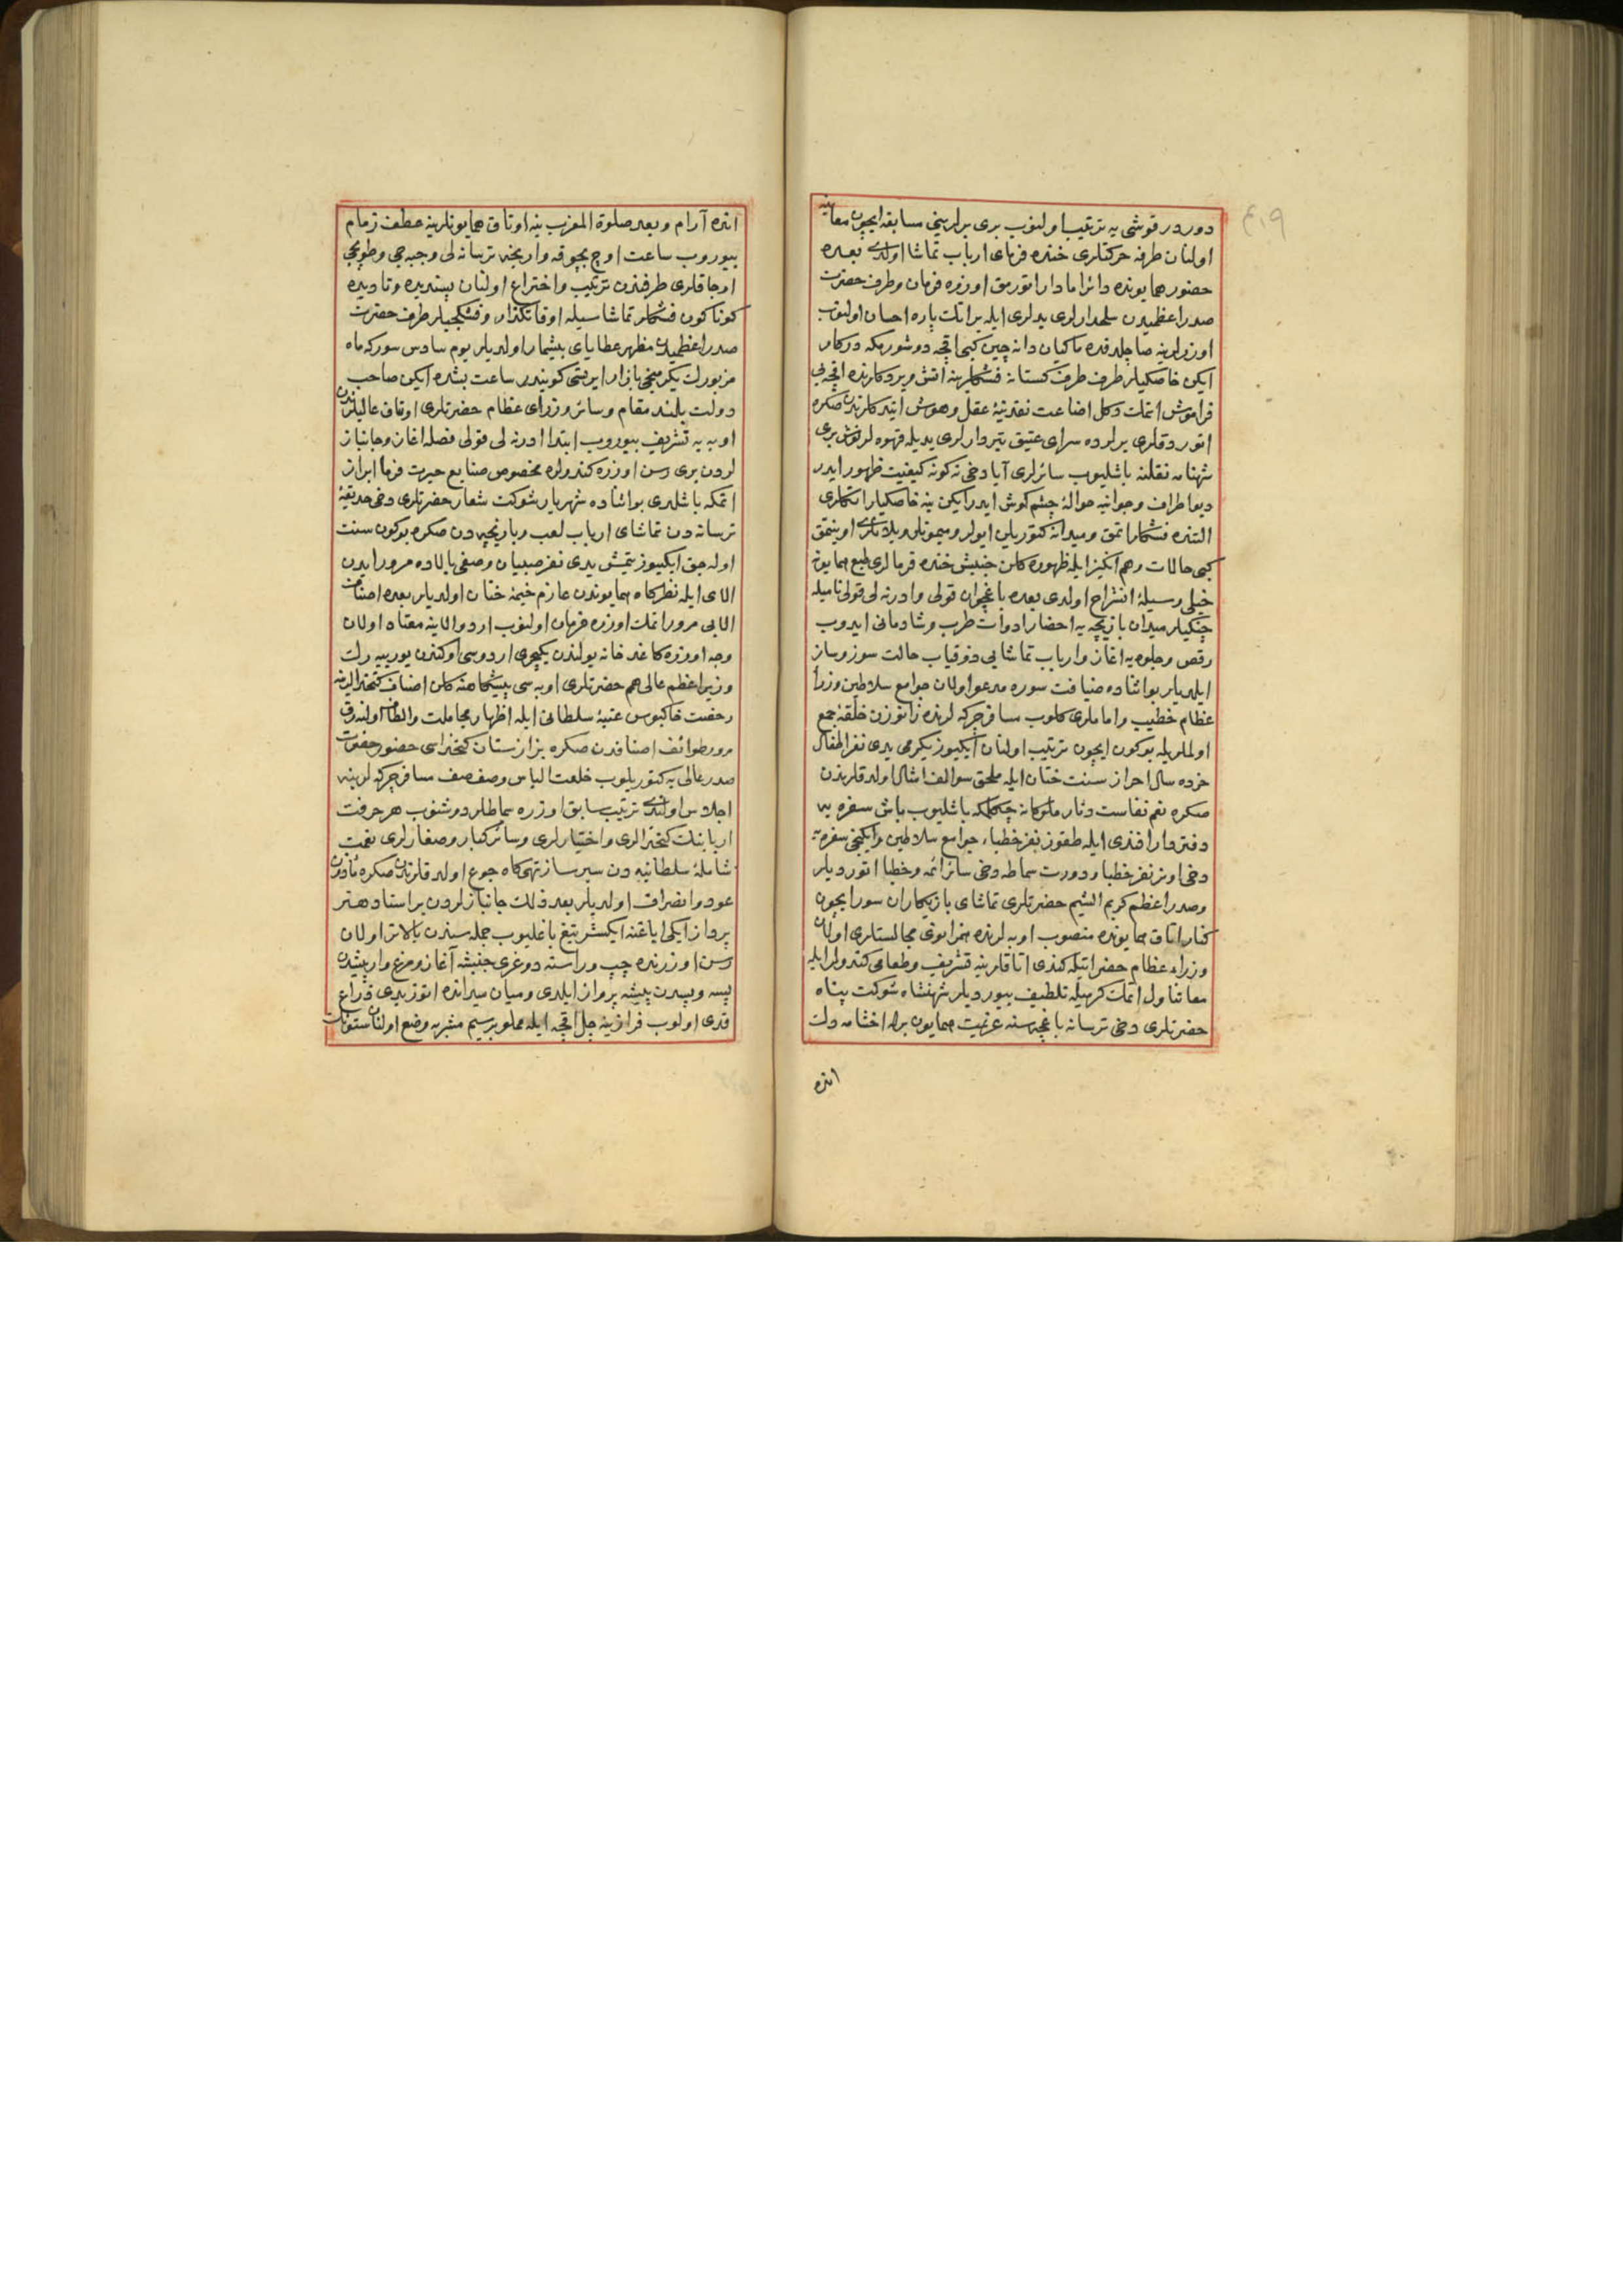 ٤١٩
دوردر قوشی یه ترتیب اولنوب بری برلرینی مسابقه ایچون معاینه
اولنان طرفه حرکتلری خنده فرمای ارباب تماشا اولدی بعده
حضور همایونده دائرا مادار اتورمق اوزره فرمان وطرف حضرت
صدراعظمیدن سلحدارلری یدلری ایله برانلت پاره احسان اولنوب
اوزرلرینه صاچلدقده ماکیان دانه چین کبی اقچه دوشورمکه درکار
ایکن خاصکیلر طرف طرف کستانه فشکلرینه اتش ویردکلرنده اقچه یی
فراموش اتمك وکل اضاعت نقدینهٔ عقل وهوش ایتدکلرندن صکره
اتوردقلری یرلرده سرای عتیق تبردارلری یدیله قهوه لر نوش بری
شهنامه نقلنه باشلیوب سائرلری آیا دخی نه کونه کیفیت ظهور ایدر
دیو اطراف وجوانبه حوالهٔ چشم کوش ایدر ایکن ینه خاصکیلر اتکلری
التنده فشکلر اتمق ومیدانه کتوریلن ایولر ومیمونلر ویلانلری اوینتمق
کبی حالات وهم انکیز ایله ظهوره کلن جنبش خنده فرمالری طبع همایونه
خیلی وسیلهٔ انشراح اولدی بعده باغچوان قولی وادرنه لی قولی نامیله
چنکیلر میدان بازیچه یه احضار ادوات طرب وشادمانی ایدوب
رقص وجلوه یه اغاز وارباب تماشایی ذوقیاب حالت سوز وساز
ایلدیلر بو اثناده ضیافت سوره مدعو اولان جوامع سلاطین وزرا
عظام خطیب واماملری کلوب مسافر چرکه لرنده زانوزن حلقهٔ جمع
اولملریله بوکون ایچون ترتیب اولنان ایکیوز یکرمی یدی نفر اطفال
خرده سال احراز سنت ختان ایله ملحق سوالف امثال اولدقلرندن
صکره نعم نفاست دثار ملوکانه چکلمکه باشلیوب باش سفره یه
دفتردار افندی ایله طقوز نفر خطباء جوامع سلاطین وایکنجی سفره یه
دخی اوتر نفر خطبا ودورت سماطه دخی سائر ائمه وخطبا اتوردیلر
وصدراعظم کریم الشیم حضرتلری تماشای بازیکاران سور ایچون
کنار اتاق همایونده منصوب اوبه لرنده همزانوی مجالستلری اولان
وزراء عظام حضراتیله کندی اتاقلرینه تشریف وطعامی کندولر ایله
معا تناول اتمك کرمیله تلطیف بیوردیلر شهنشاه شوکت پناه
حضرتلری دخی ترسانه باغچه سنه عزیمت همایون برله اخشامه دك
انده
انده آرام وبعد صلوة المغرب ینه اوتاق همایونلرینه عطف زمام
بیوروب ساعت اوچ بچوقه وارنجه ترسانه لی وجبه جی وطوپجی
اوجاقلری طرفندن ترتیب واختراع اولنان پسندیده ونادیده
کوناکون فشکلر تماشاسیله اوقاتکذار وفشکجیلر طرف حضرت
صدراعظمیدن مظهر عطایای بیشمار اولدیلر یوم سادس سورکه ماه
مزبورك یکرمنجی بازار ایرتسی کونیدر ساعت بشده ایکن صاحب
دولت بلند مقام وسائر وزرای عظام حضرتلری اوتاق عالیلرندن
اوبه یه تشریف بیوروب ابتدا ادرنه لی قولی فصله اغاز وجانباز
لردن بری رسن اوزره کندولره مخصوص صنایع حیرت فرما ابراز
اتمکه باشلدی بو اثناده شهریار شوکت شعار حضرتلری دخی حدیقهٔ
ترسانه دن تماشای ارباب لعب وبازیچه دن صکره بوکون سنت
اوله جق ایکیوز یتمش یدی نفر صبیان وصفی بالاده مرور ایدن
الای ایله نظرکاه همایوندن عازم خیمهٔ ختان اولدیلر بعده اصناف
الایی مرور اتمك اوزره فرمان اولنوب اردو الاینه معتاد اولان
وجه اوزره کاغدخانه یولندن یکیچری اردوسی اوکندن یوریه رك
وزیراعظم عالی همم حضرتلری اوبه سی پیشکاهنه کلن اصناف کتخدالرینه
رخصت خاکبوس عتبهٔ سلطانی ایله اظهار مجاملت والطاف اولندرق
مرور طوائف اصنافدن صکره بزازستان کتخداسی حضور حضرت
صدر عالی یه کتوریلوب خلعت الباس وصف صف مسافر چرکه لرینه
اجلاس اولندی ترتیب سابق اوزره سماطلر دوشنوب هر حرفت
اربابنك کتخدالری واختیارلری وسائر کبار وصغارلری نعمت
شاملهٔ سلطانیه دن سیر ساز تهیکاه جوع اولدقلرندن صکره ماذون
عود وانصراف اولدیلر بعد ذلك جانبازلردن بر استاد هنر
پرداز ایکی ایاغنه ایکیشر تیغ باغلیوب جمله سندن بالاتر اولان
رسن اوزرنده چپ وراسته دوغری جنبشه آغاز ومرغ وار پیشدن
پسه وپسدن پیشه پرواز ایلدی ومیان میدانده اتوز یدی ذراع
قدی اولوب فرازینه چل اقچه ایله مملو بر سیم مشربه وضع اولنان ستونك